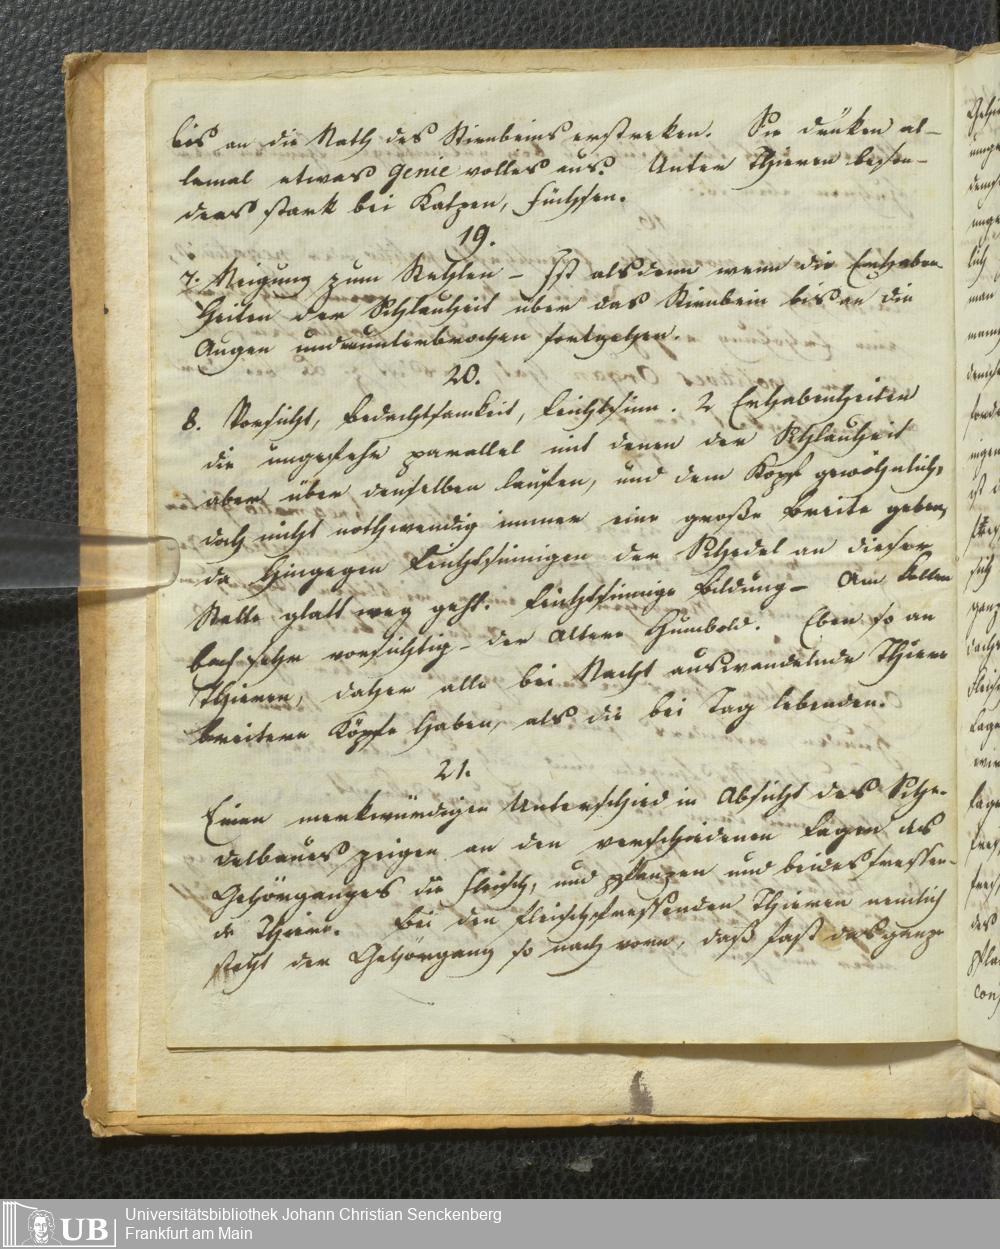 bis an die Nath des Stirnbeins erstreken. Sie drüken al-
lemal etwas genievolles aus. Unter Thieren beson-
ders stark bei Katzen, Füchsen.
19.
7. Neigung zum Stehlen – Ist alsdenn wenn die Erhaben-
heiten der Schlauheit über das Stirnbein bis an die
Augen ununterbrochen fortgehen.
20.
8. Vorsicht, Bedachtsamkeit, Leichtsinn. 2 Erhabenheiten
die ungefehr parallel mit denen der Schlauheit
aber über denselben laufen, und dem Kopf gewöhnlich,
doch nicht nothwendig immer eine große Breite geben,
da hingegen Leichtsinnigen der Schedel an dieser
Stelle glatt weg geht. Leichtsinnige Bildung –
bach sehr vorsichtig – der Altere Humbold. Eben so an
Thieren, daher alle bei Nacht auswandelnde Thiere
breitere Köpfe haben, als die bei Tag lebenden.
21.
Einen merkwürdigen Unterschied in Absicht des Sche-
delbaues zeigen an den verschiedenen Lagen des
Gehörganges die fleisch, und pflanzen und beides fressen-
de Thiere. Bei den fleischfressenden Thieren nemlich
steht der Gehörgang so nach vorn, daß fast das ganze
UB
Universitätsbibliothek Johann Christian Senckenberg
Frankfurt am Main